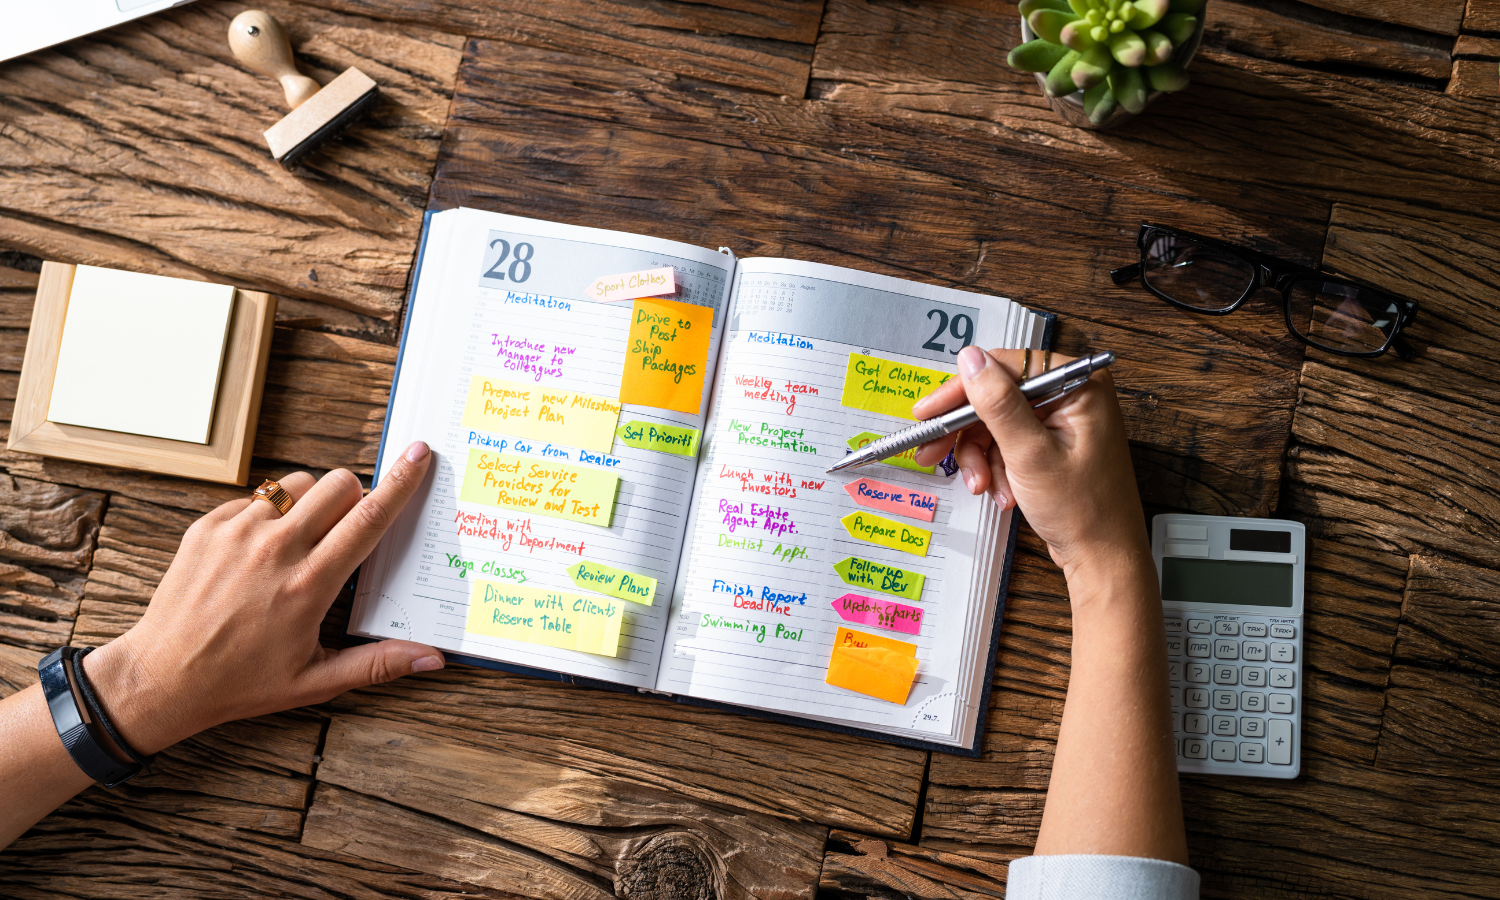 28
Sport Clothes
Meditation
Drive to
Post
Ship
Packages
Introduce new
Manager to
Colleagues
Prepare new Milestone
Project Plan
Set Prioriti
Pickup Car from Dealer
Select Service
Providers for
Review and Test
Meeting with
Marketing Department
Yoga Classes
Review Plans
Dinner with Clients
Reserve Table
28.7.
August
29
Meditation
Get Clothes f
Chemical
Weekly team
meeting
New Project
Presentation
Lunch with new
Investors
Reserve Table
Real Estate
Agent Appt.
Prepare Docs
Dentist Appt.
Followup
with Dev
Finish Report
Deadline
Update Charts
!!!
Swimming Pool
29.7.
√ % TAX- TAX+
MR M- M+ ÷
7 8 9 ×
4 5 6 −
1 2 3 +
0 · =